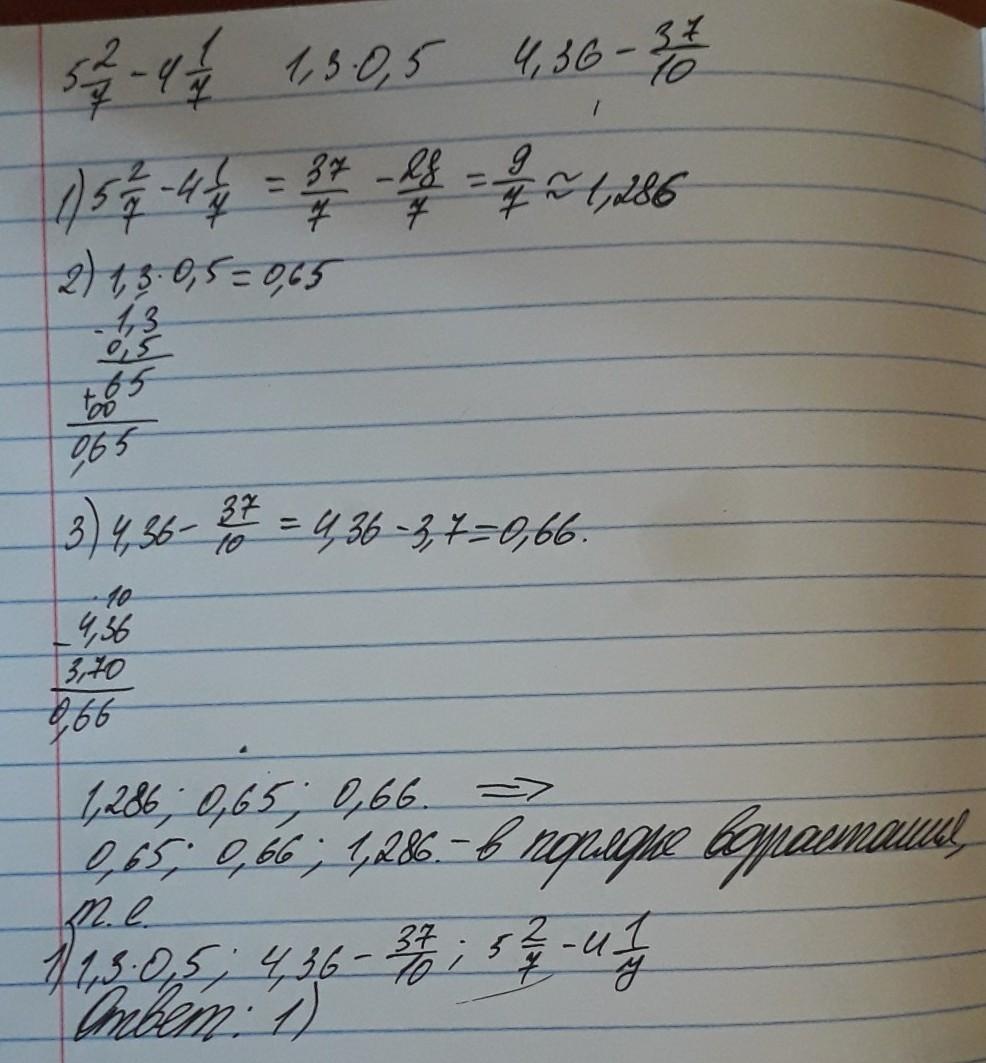 5 2/7 - 4 1/7   1,3·0,5   4,36 - 37/10
1) 5 2/7 - 4 1/7 = 37/7 - 28/7 = 9/7 ≈ 1,286
2) 1,3·0,5 = 0,65
1,3
0,5
65
+ 00
0,65
3) 4,36 - 37/10 = 4,36 - 3,7 = 0,66.
·10
- 4,36
3,70
0,66
1,286; 0,65; 0,66. =>
0,65; 0,66; 1,286. - в порядке возрастания,
т.е.
1) 1,3·0,5; 4,36 - 37/10; 5 2/7 - 4 1/7
Ответ: 1)